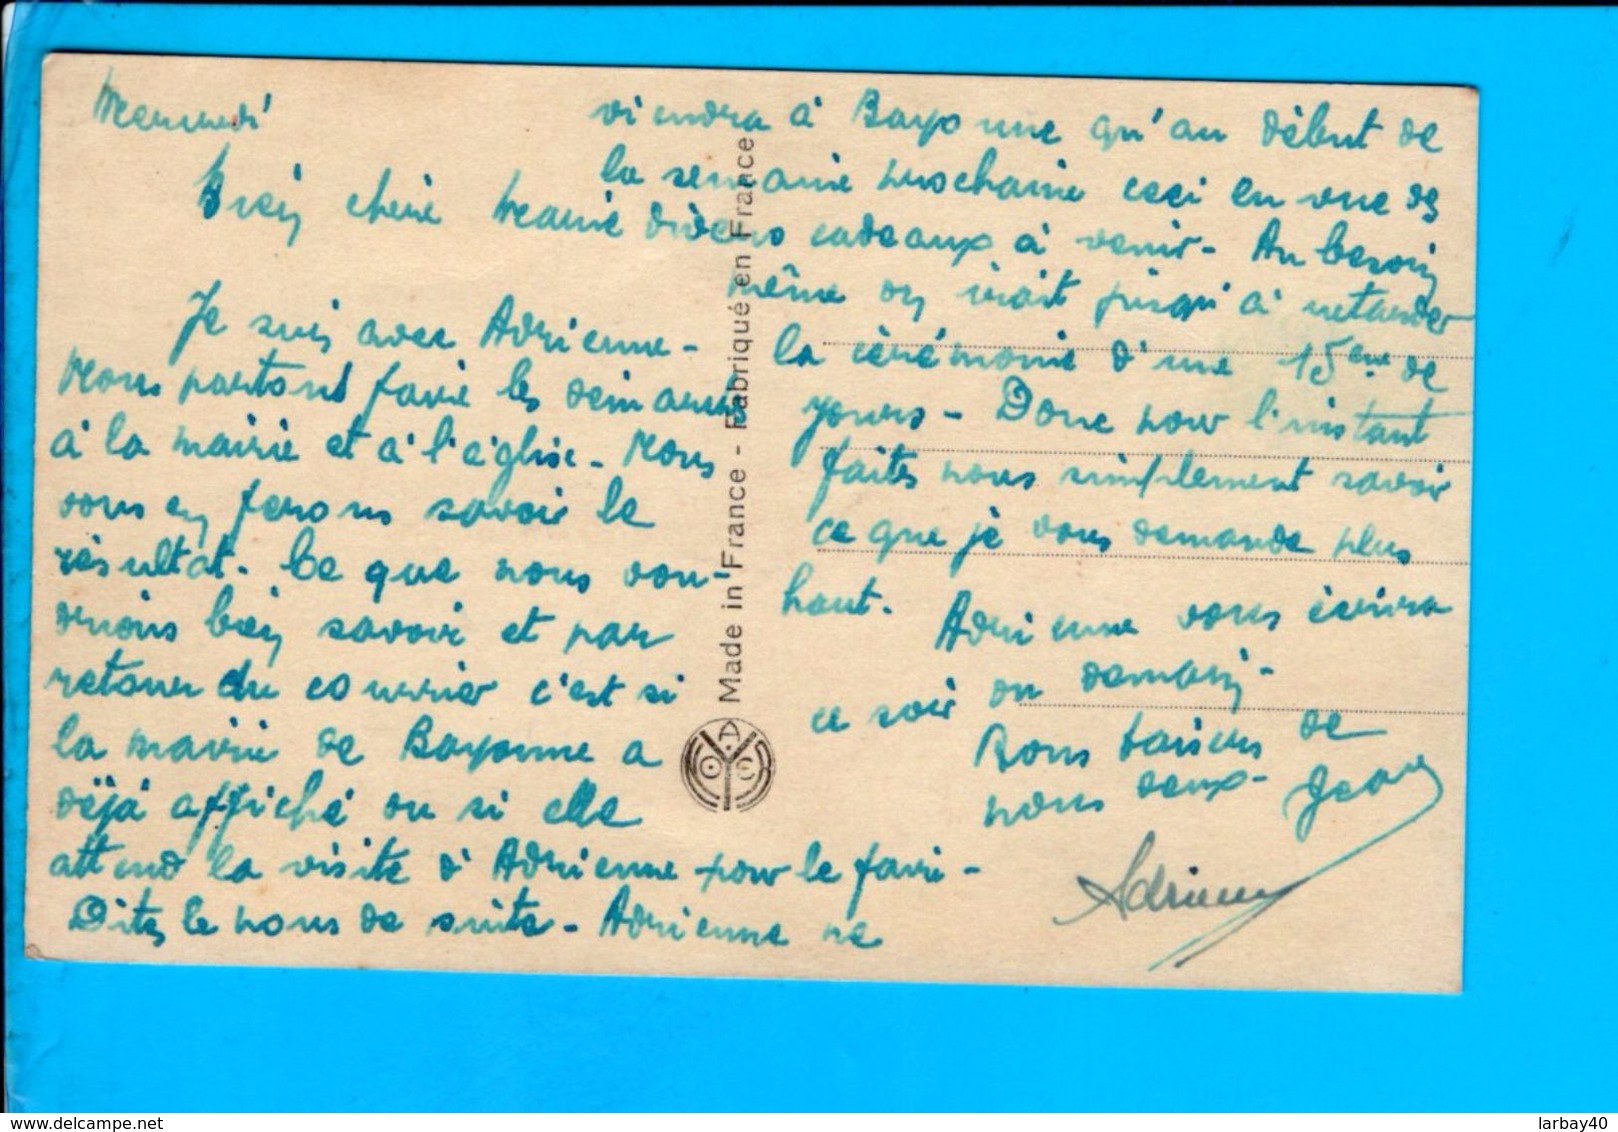 Mercredi
Bien chère Marie
Je suis avec Adrienne -
Nous partons faire les démarches
à la mairie et à l'église - Nous
vous en ferons savoir le
résultat. Ce que nous vou-
drions bien savoir et par
retour du courrier c'est si
la mairie de Bayonne a
déjà affiché ou si elle
attend la visite d'Adrienne pour le faire -
Dites le nous de suite - Adrienne ne
viendra à Bayonne qu'au début de
la semaine prochaine ceci en vue de
divers cadeaux à venir - Au besoin
même on irait jusqu'à retarder
la cérémonie d'une 15ene de
jours - Donc pour l'instant
faites nous simplement savoir
ce que je vous demande plus
haut. Adrienne vous écrira
ce soir ou demain -
Bons baisers de
nous deux - Jean
Adrienne
Made in France - Fabriqué en France
larbay40
www.delcampe.net